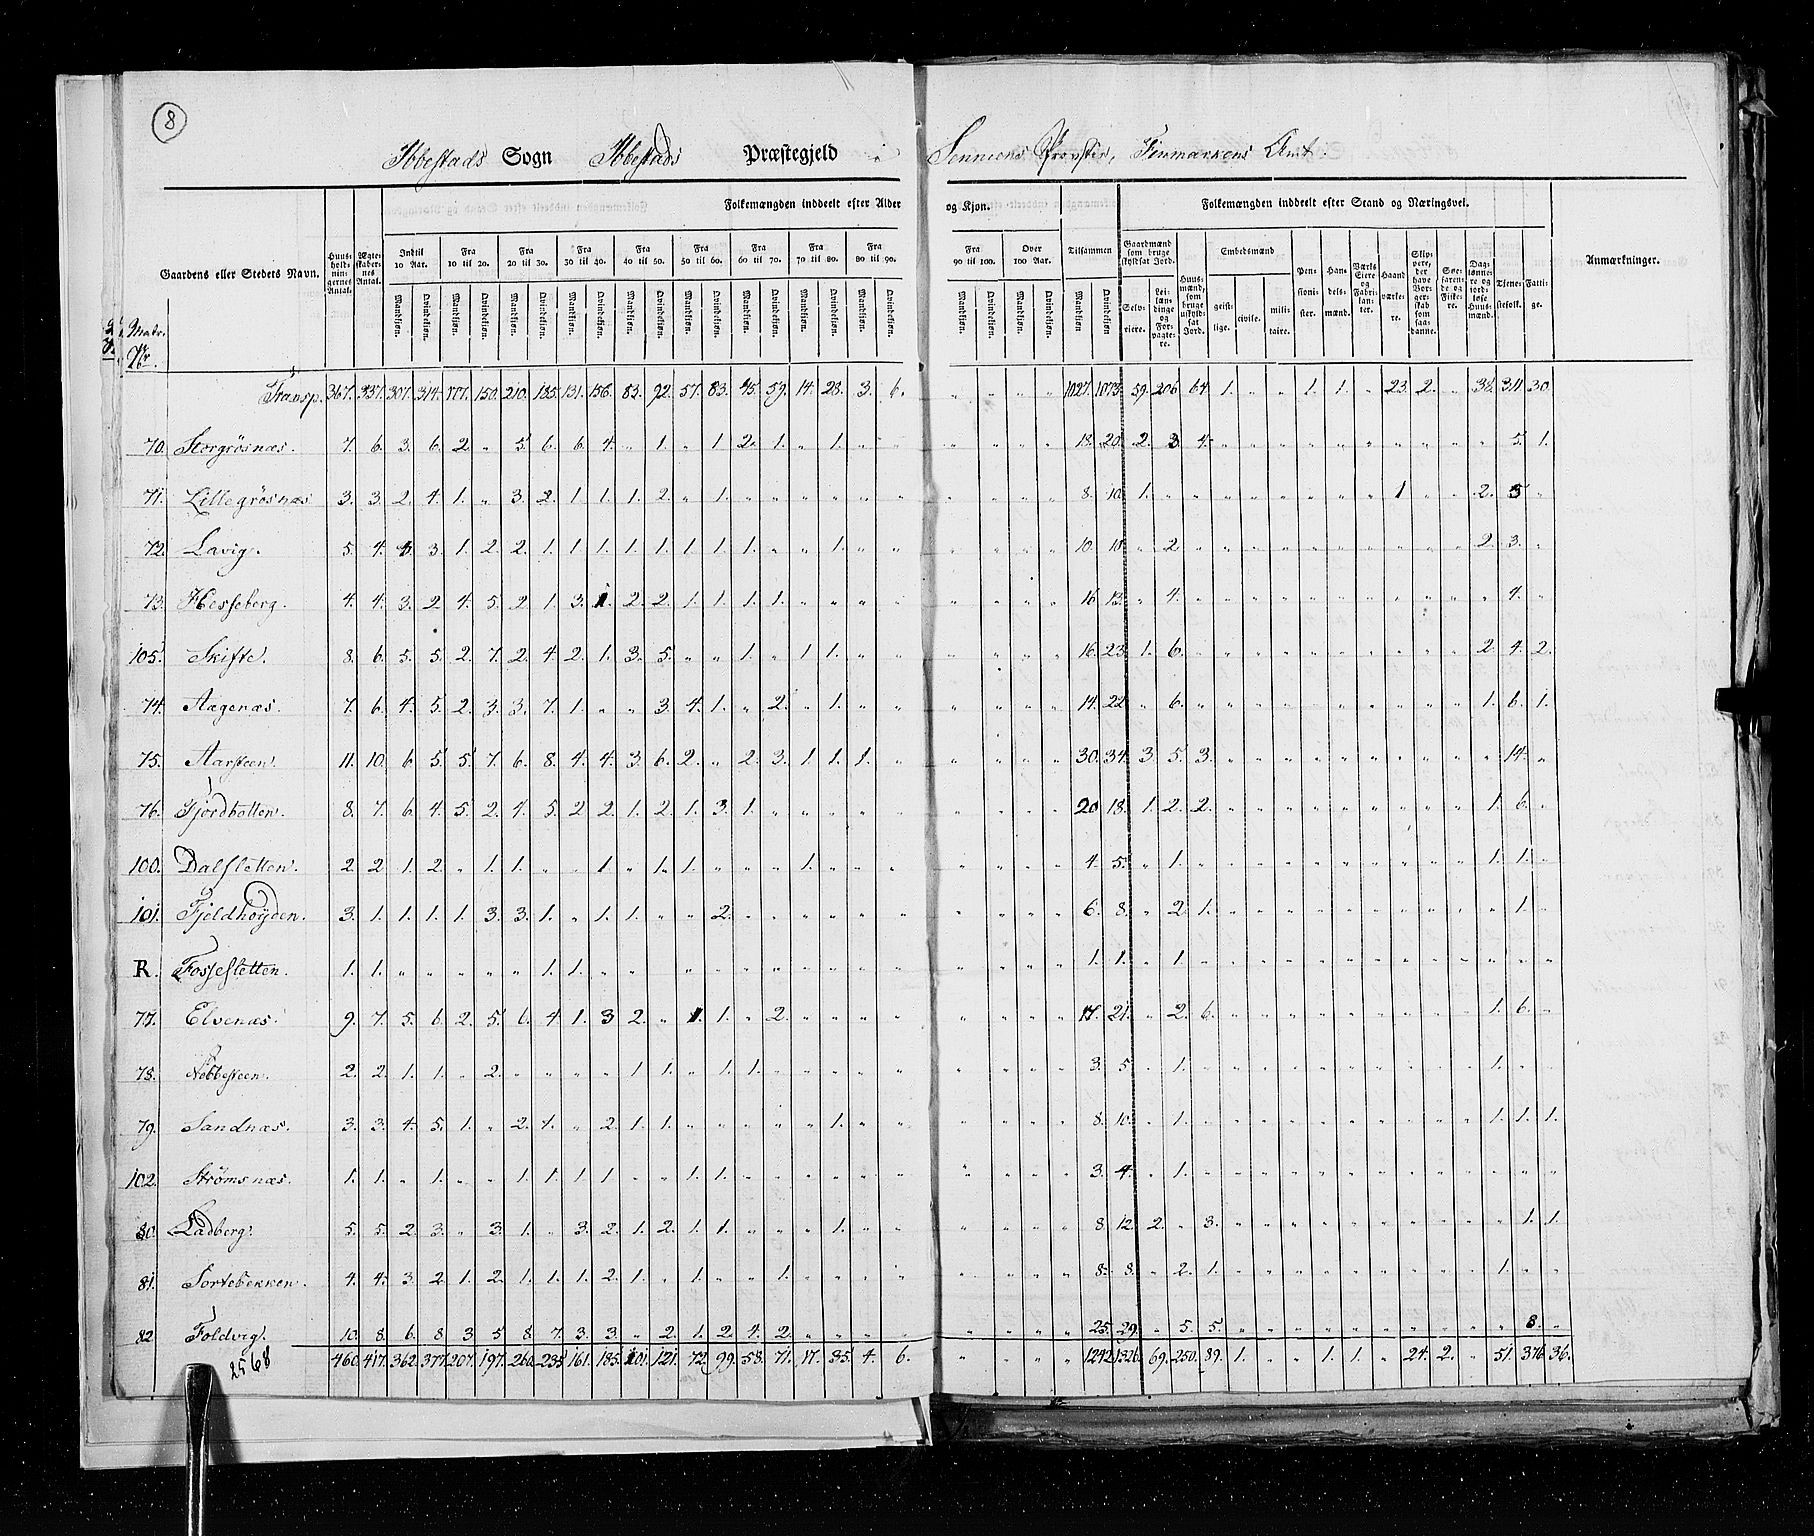 8
Ibbestads Sogn Ibbestads Præstegjeld Senniens Provstie, Finmarkens Amt.
Folkemængden inddeelt efter Alder og Kjøn. Folkemængden inddeelt efter Stand og Næringsvei.
Gaardens eller Stedets Navn. Huusholdningernes Antal. Ægteskabernes Antal. Indtil 10 Aar. Fra 10 til 20. Fra 20 til 30. Fra 30 til 40. Fra 40 til 50. Fra 50 til 60. Fra 60 til 70. Fra 70 til 80. Fra 80 til 90. Fra 90 til 100. Over 100 Aar. Tilsammen Gaardmænd som bruge skyldsat Jord. Huusmænd, som bruge uskyldsat Jord. Embedsmænd Pensionister. Handelsmænd. Værks Eiere og Fabrikanter. Haandværkere. Skippere, der have Borgerskab som saadanne. Søefarende og Fiskere. Daglønnere og jordløse Huusmænd. Tjenestefolk. Fattige. Anmærkninger.
Mandkjøn. Qvindekjøn. Selveiere. Leilændinge og Forpagtere. geistlige. civile. militaire.
Matr. Nr.
Transp. 367. 337. 307. 314. 177. 150. 210. 185. 131. 156. 83. 92. 57. 83. 45. 59. 14. 28. 3. 6. " " " " 1027. 1073. 59. 206. 64. 1. " " 1. 1. " 23. 2. " 38. 311. 30.
70. Storgrøsnæs. 7. 6. 3. 6. 2. " 5. 6. 6. 4. " 1. " 1. 2. 1. " 1. " " " " " " 18. 20. 2. 3. 4. " " " " " " " " " " 5. 1.
71. Lillegrøsnæs 3. 3. 2. 4. 1. " 3. 2. 1. 1. 1. 2. " 1. " " " " " " " " " " 8. 10. 1. " " " " " " " " 1 " " 2. 5 "
72. Lavig. 5. 4. 1. 3. 1. 2. 2. 1. 1. 1. 1. 1. 1. 1. 1. " " 1. " " " " " " 10. 10. " 2. " " " " " " " " " " 2. 3. "
73. Hesseberg. 4. 4. 3. 2. 4. 5. 2. 1. 3. 1. 2. 2. 1. 1. 1. 1. " " " " " " " " 16. 13. " 4. " " " " " " " " " " " 4. "
105. Skifte. 8. 6. 5. 5. 2. 7. 2. 4. 2. 1. 3. 5. " " 1. " 1. 1. " " " " " " 16. 23. 1. 6. " " " " " " " " " " 2. 4. 2.
74. Aagenæs. 7. 6. 4. 5. 2. 3. 3. 7. 1. " " 3. 4. 1. " 2. " 1. " " " " " " 14. 22. " 6. " " " " " " " " " " 1. 6. 1.
75. Aarsteen. 11. 10. 6. 5. 5. 7. 6. 8. 4. 4. 3. 6. 2. " 2. 3. 1. 1. 1. " " " " " 30. 34. 3. 5. 3. " " " " " " " " " " 14. "
76. Fjordbotten. 8. 7. 6. 4. 5. 2. 4. 5. 2. 2. 1. 2. 1. 3. 1. " " " " " " " " " 20 18. 1. 2. 2. " " " " " " " " " 1. 6. "
100. Dalsletten. 2. 2. 1. 2. " 1. 1. " " 1. " 1. 1. " " " 1. " " " " " " " 4. 5. " 1. " " " " " " " " " " 1. 1. "
101. Fjeldhøyden. 3. 1. 1. 1. 1. 3. 3. 1. " 1. 1. " " 2. " " " " " " " " " " 6. 8. " 2. 1. " " " " " " " " " " 1. "
R. Fossesletten. 1. 1. " " " " " 1. 1. " " " " " " " " " " " " " " " 1. 1. " 1. " " " " " " " " " " " " "
77. Elvenæs. 9. 7. 5. 6. 2. 5. 6. 4. 1. 3 2. " 1. 1. " 2. " " " " " " " " 17. 21. " 2. 6. " " " " " " " " " 1. 6. "
78. 2. 2. 1. 1. " 2. " " " " 1. 1. " 1. 1. " " " " " " " " " 3. 5. " 1. " " " " " " " " " " 1. " "
79. Sandnæs. 3. 3. 4. 5. 1. " 2. 1. " 2. 1. 1. " " " " " 1. " " " " " " 8. 10. " 1. " " " " " " " " " " 1. 1. 1.
102. Strømsnæs. 1. 1. " 1. " " 1. 1. 1. 1. " " 1. 1. " " " " " " " " " " 3. 4. " 1. " " " " " " " " " " " " "
80. Ladberg. 5. 5. 2. 3. " 3. 1. " 3. 2. 1. 2. 1. 1. " " " 1. " " " " " " 8. 12. 2. " 3. " " " " " " " " " " 1. 1.
81. Sortebekken. 4. 4. 3. 2. 1. 2. 1. 1. 1. 2. 1. " 1. " " 1. " " " " " " " " 8. 8. " 2. 1. " " " " " " " " " 1. " "
82 Foldvig. 10. 8. 6. 8. 3 5 8. 7. 3. 3. " 2. 1. 2. 4. 2. " " " " " " " " 25. 29. " 5. 5. " " " " " " " " " " 8. "
2568 460. 417. 362. 377. 207. 197. 260. 235 161. 185. 101. 121. 72. 99. 58. 71. 17. 35. 4. 6. " " " " 1242. 1326. 69. 250. 89. 1. " " 1. 1. " 24. 2. " 51. 376. 36.